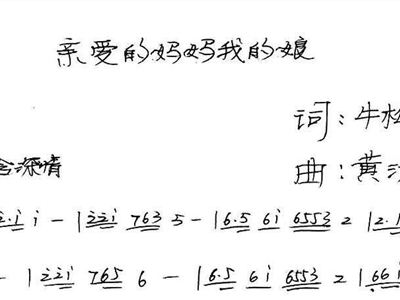 亲爱的妈妈我的娘
词：牛松
曲：黄
含深情
2.i i － | 2̇2̇i 763 5 － | 6.5 6i 6553 2 | 2.1
－ | 2̇2̇i 765 6 － | 6.5 6i 6553 2 | 66i